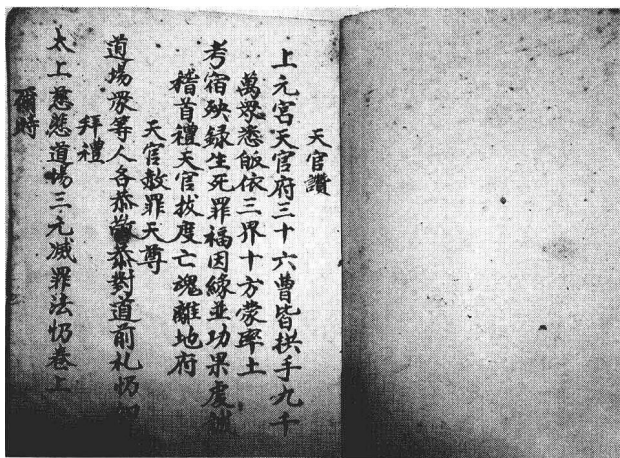 天官讚
上元宮天官府三十六曹皆拱手九千
萬眾悉皈依三界十方蒙率土
考宿殃録生死罪福因緣並功果虔誠
稽首禮天官拔度亡魂離地府
天官赦罪天尊
道場眾等人各恭敬恭對道前礼忏
拜禮
太上慈悲道場三元滅罪法忏卷上
爾時